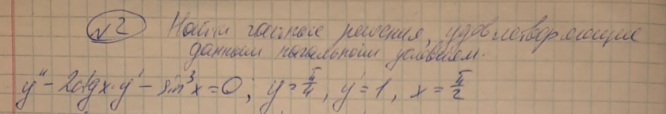 №2 Найти частные решения, удовлетворяющие
данным начальным условием.
y'' - 2ctgx·y' - sin³x = 0; y = π/4, y' = 1, x = π/2